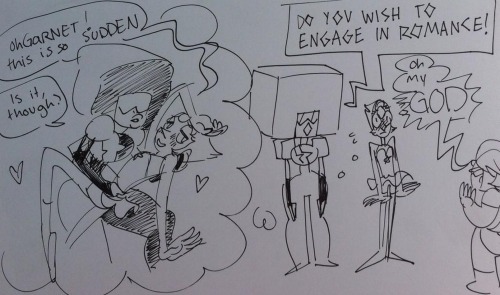 ohGaRNET!
this is so SUDDEN
Is it,
though?
DO YOU WISH TO
ENGAGE IN ROMANCE!
oh
my
GOD